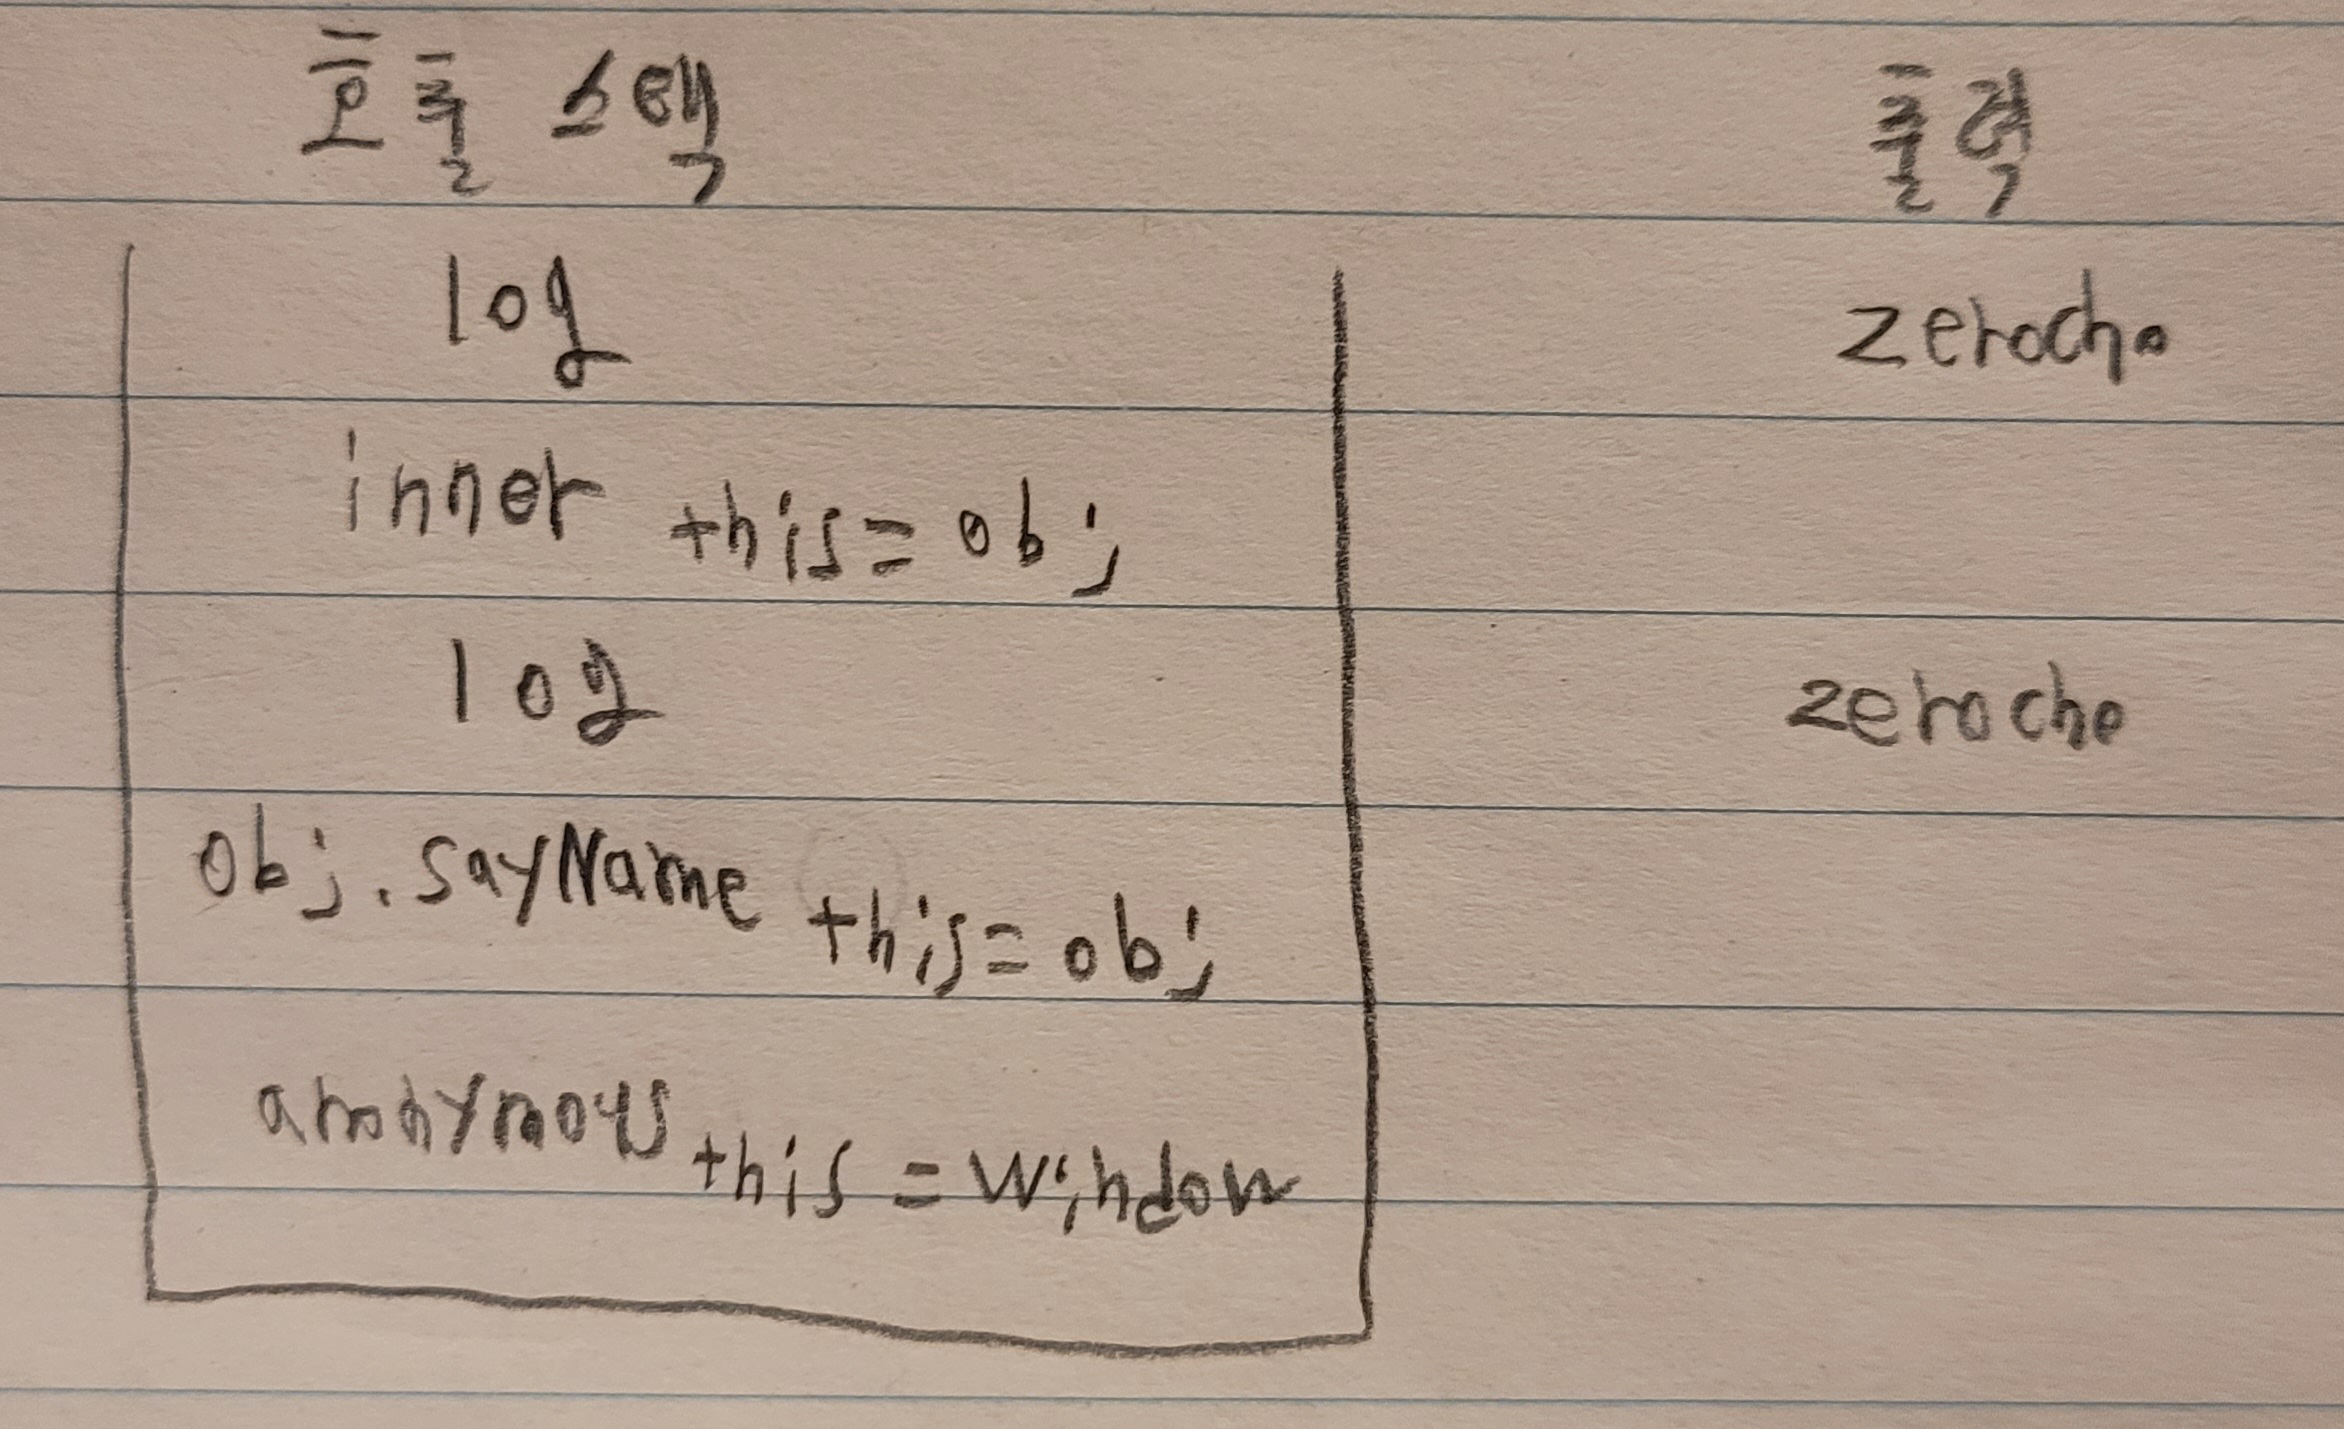 호출 스택 출력
log zerocho
inner this=obj
log zerocho
obj.sayName this=obj
anonymous this=window